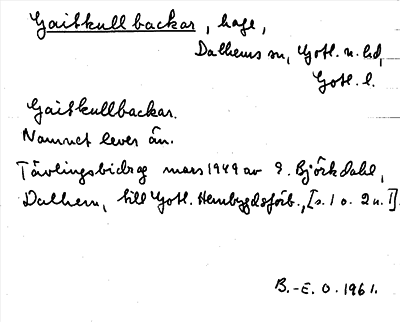 Gaitkullbackar, hage,
Dalhems sn, Gotl. n. hd,
Gotl. l.
Gaitkullbackar.
Namnet lever än.
Tävlingsbidrag mars 1949 av E. Björkdahl,
Dalhem, till Gotl. Hembygdsförb., [s. 1 o. 2 u. I].
B.-E. O. 1961.